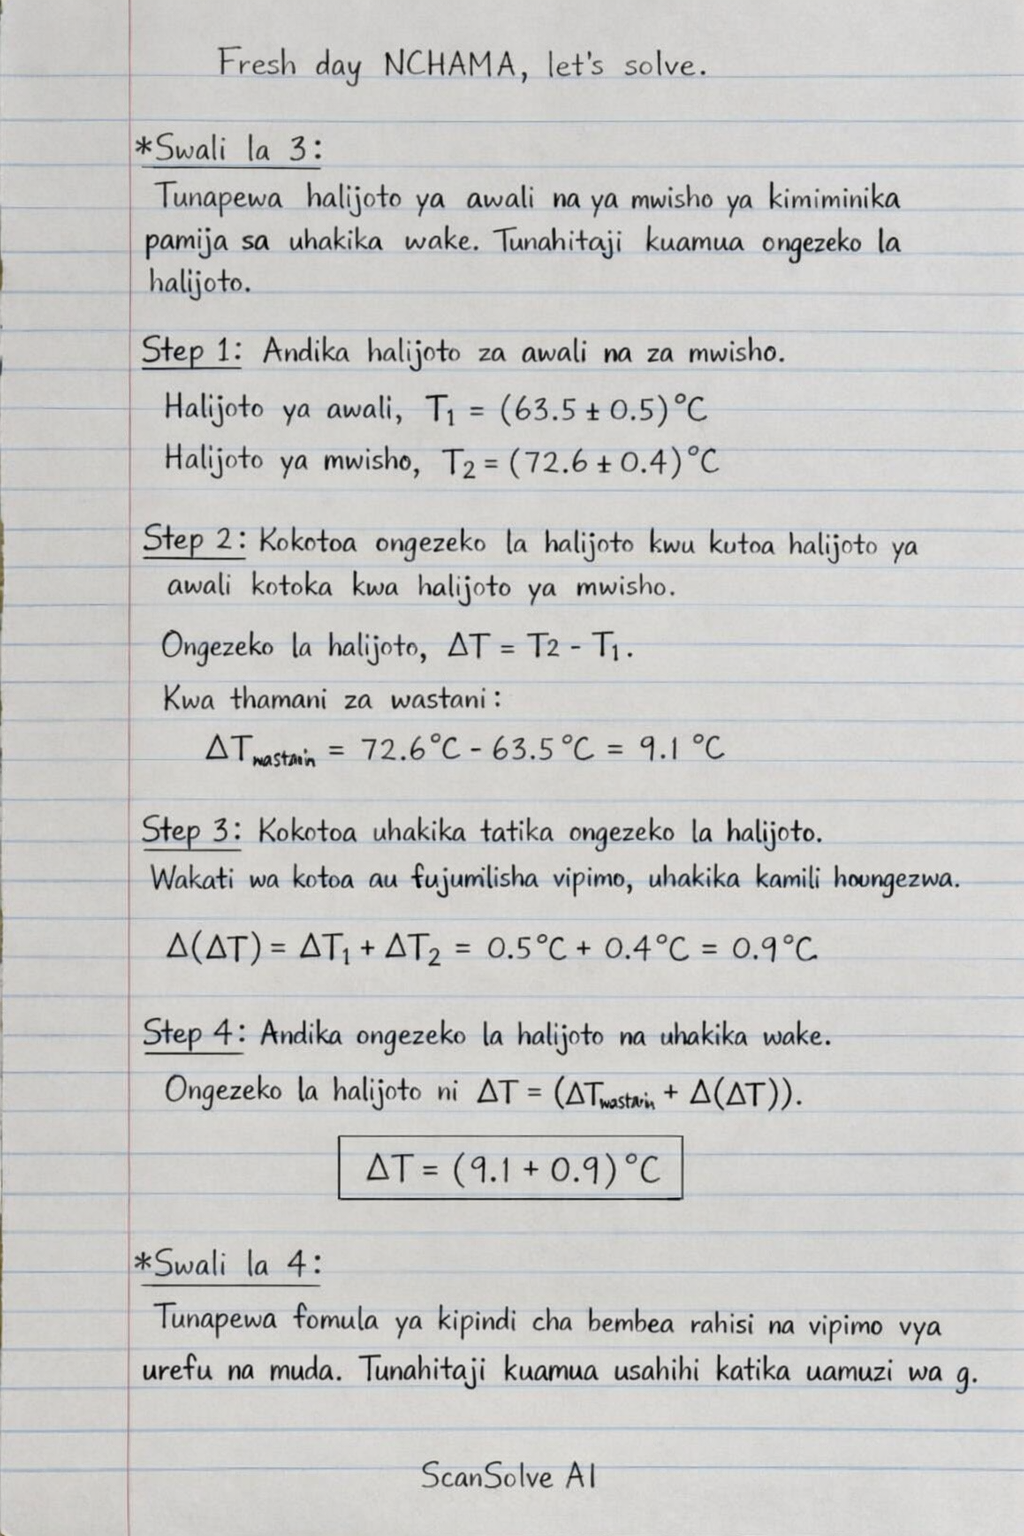 Fresh day NCHAMA, let's solve.
*Swali la 3:
Tunapewa halijoto ya awali na ya mwisho ya kimiminika
pamija sa uhakika wake. Tunahitaji kuamua ongezeko la
halijoto.
Step 1: Andika halijoto za awali na za mwisho.
Halijoto ya awali, T₁ = (63.5 ± 0.5)°C
Halijoto ya mwisho, T₂ = (72.6 ± 0.4)°C
Step 2: Kokotoa ongezeko la halijoto kwu kutoa halijoto ya
awali kotoka kwa halijoto ya mwisho.
Ongezeko la halijoto, ΔT = T2 - T₁.
Kwa thamani za wastani:
ΔT = 72.6°C - 63.5°C = 9.1 °C
Step 3: Kokotoa uhakika tatika ongezeko la halijoto.
Wakati wa kotoa au fujumlisha vipimo, uhakika kamili houngezwa.
Δ(ΔT) = ΔT₁ + ΔT₂ = 0.5°C + 0.4°C = 0.9°C
Step 4: Andika ongezeko la halijoto na uhakika wake.
Ongezeko la halijoto ni ΔT = (ΔT + Δ(ΔT)).
ΔT = (9.1 + 0.9)°C
*Swali la 4:
Tunapewa fomula ya kipindi cha bembea rahisi na vipimo vya
urefu na muda. Tunahitaji kuamua usahihi katika uamuzi wa g.
ScanSolve AI